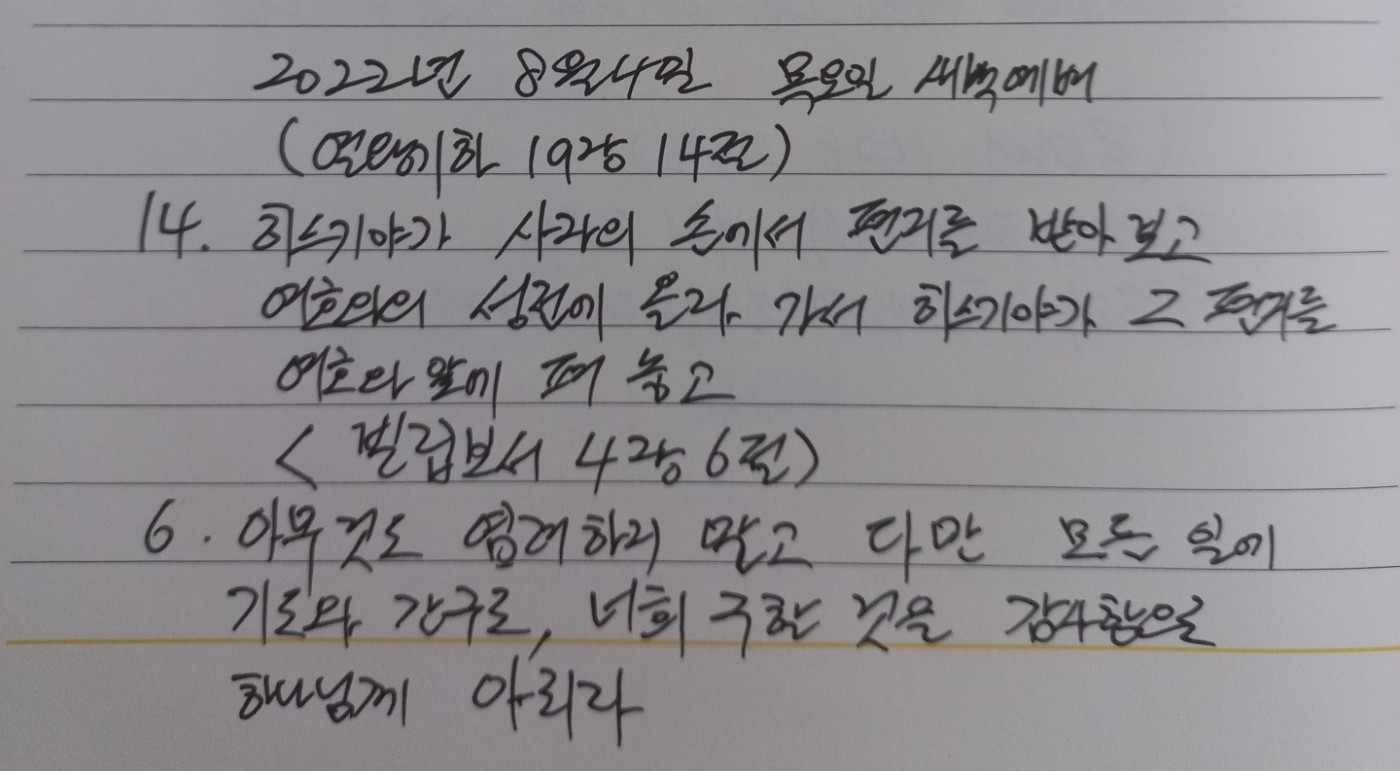 2022년 8월 4일 목요일 새벽예배
(열왕기하 19장 14절)
14. 히스기야가 사자의 손에서 편지를 받아 보고
여호와의 성전에 올라 가서 히스기야가 그 편지를
여호와 앞에 펴 놓고
< 빌립보서 4장 6절)
6. 아무것도 염려하지 말고 다만 모든 일에
기도와 간구로, 너희 구할 것을 감사함으로
하나님께 아뢰라